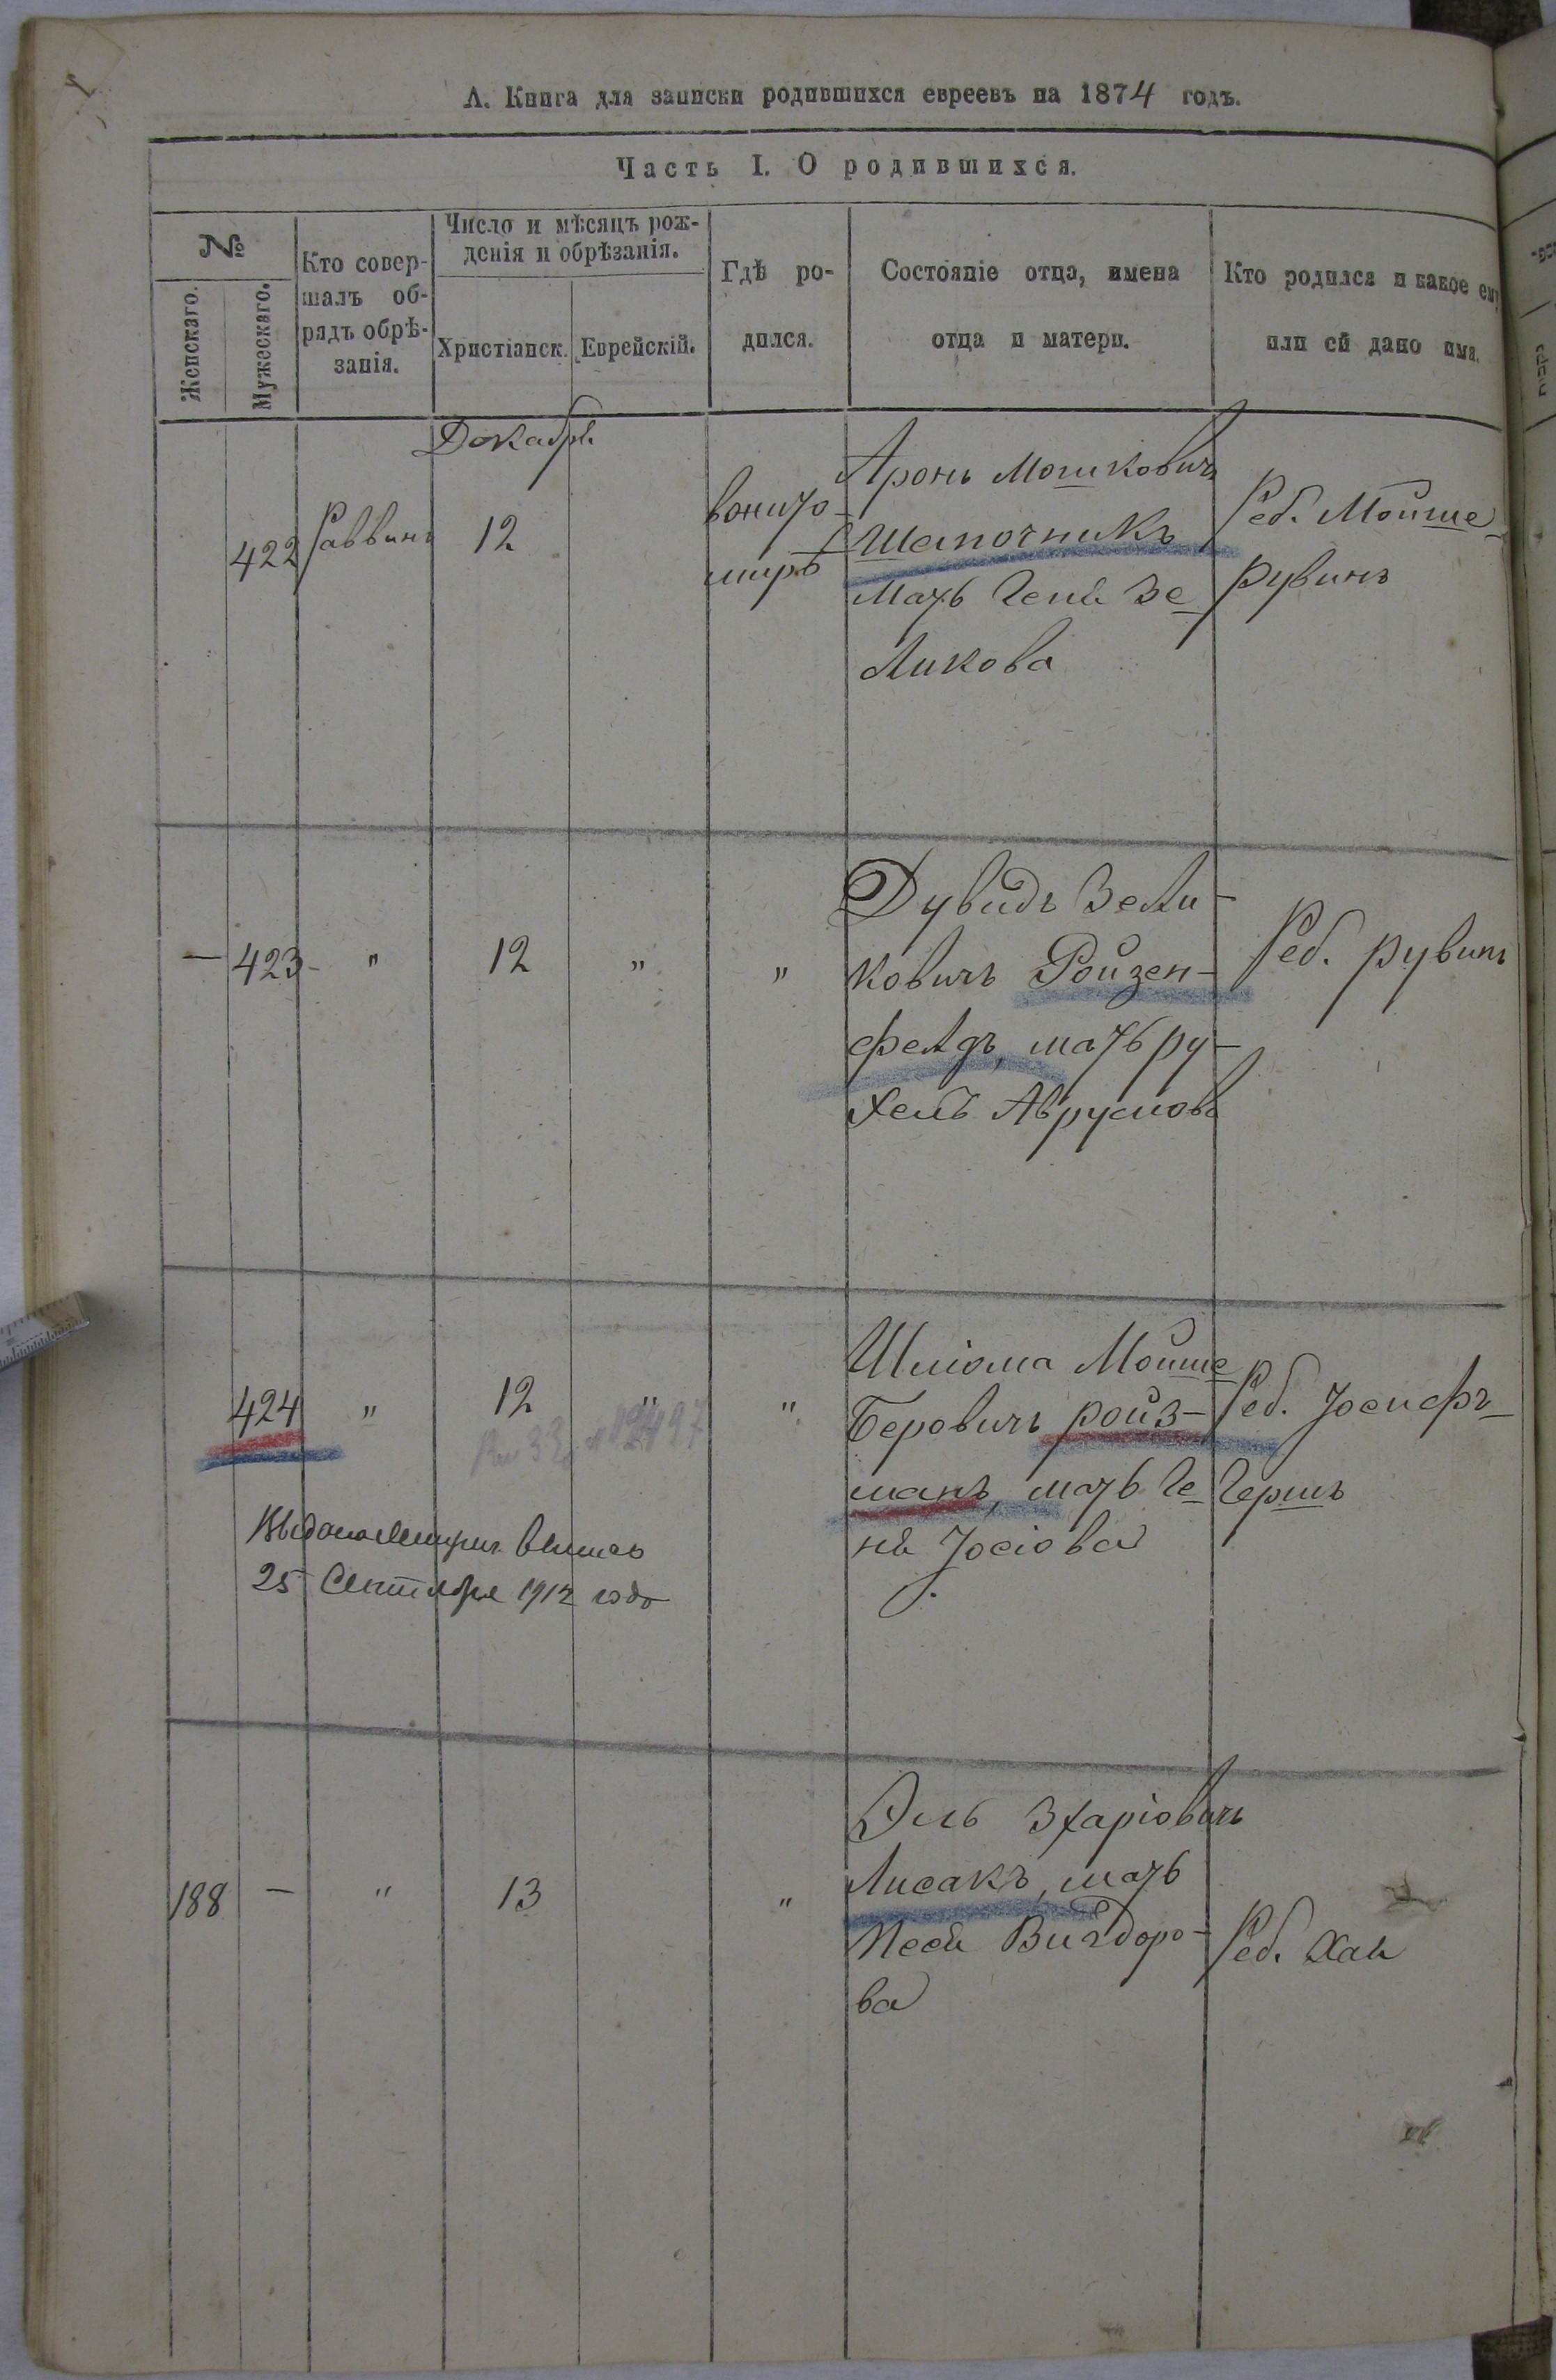 А. Книга для записки родившихся евреевъ на 1874 годъ.
Часть I. О родившихся.
№
Женскаго.
Мужескаго.
Кто совер-
шалъ об-
рядъ обрѣ-
занія.
Число и мѣсяцъ рож-
денія и обрѣзанія.
Христіанск.
Еврейскій.
Гдѣ ро-
дился.
Состояніе отца, имена
отца и матери.
Кто родился и какое ему
или ей дано имя.
Декабрь
422
Раввинъ
12
вжито-
мирѣ
Аронъ Мошковичъ
Шапочникъ
мать Геня Зе
ликова
Реб. Мойше-
Рувинъ
— 423 - " 12 " "
Дувидъ Зели-
ковичъ Ройзен-
фелдъ, мать Ру-
хель Аврумова
Реб. Рувинъ
424 " 12 " "
Шліома Мойше
Беровичъ Ройз-
манъ, мать Ге
ня Іосіова
Реб. Іосифъ-
Гершъ
Выдана Метрич. выпись
25 Сентября 1912 года
188 — " 13 "
Эль Зхаріовичъ
Лисакъ, мать
Песя Вигдоро-
ва
Реб. Хая